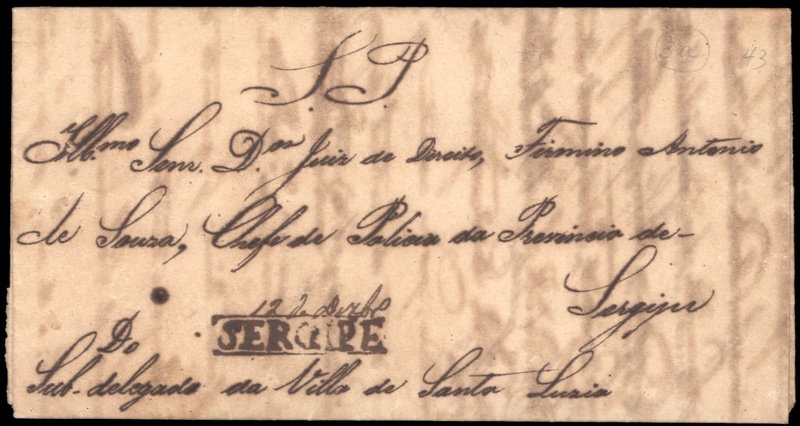 S. P.
43
Illmo Senr. Dor Juiz de Direito, Firmino Antonio
de Souza, Chefe de Policia da Provincia de-
Sergipe
12 de Dezbro
SERGIPE
Do
Sub-delegado da Villa de Santa Luzia